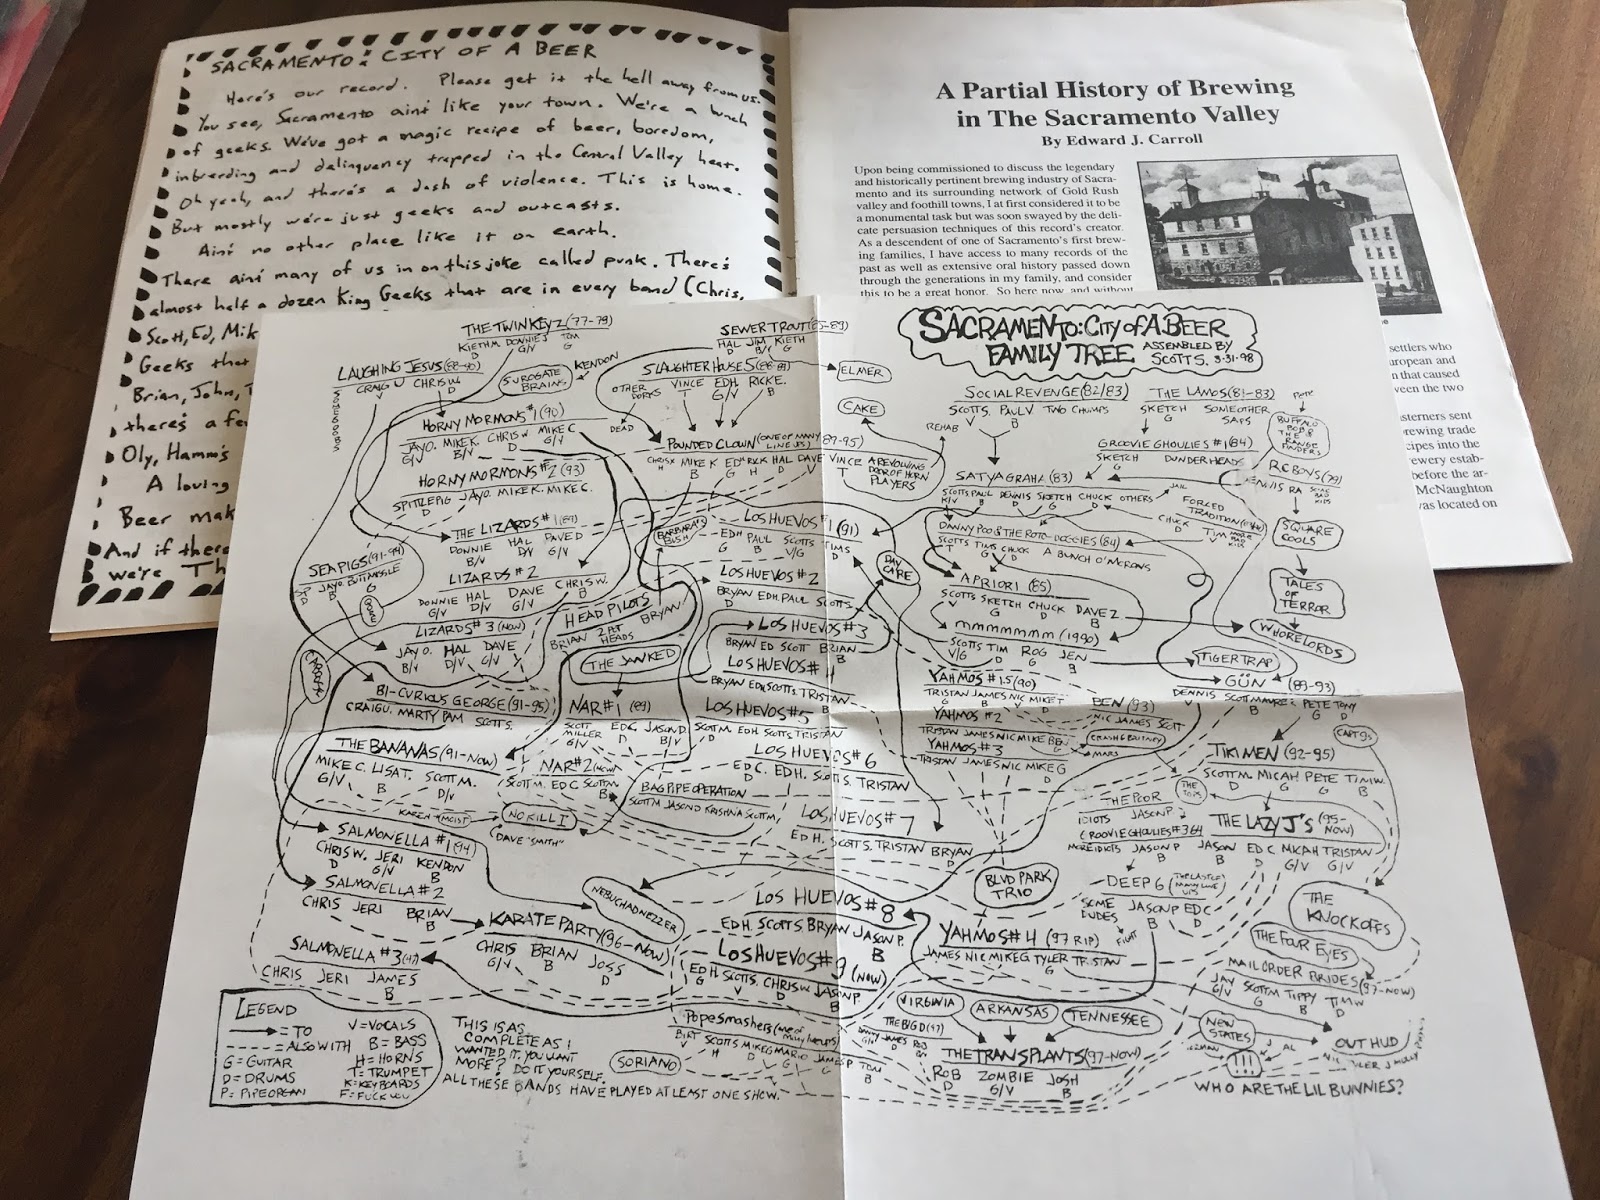 SACRAMENTO: CITY OF A BEER
Here's our record. Please get it the hell away from us.
You see, Sacramento ain't like your town. We're a bunch
of geeks. We've got a magic recipe of beer, boredom,
inbreeding and delinquency trapped in the Central Valley heat.
Oh yeah, and there's a dash of violence. This is home.
But mostly we're just geeks and outcasts.
Ain't no other place like it on earth.
There ain't many of us in on this joke called punk. There's
almost half a dozen King Geeks that are in every band (Chris,
Scott, Ed, Mik
Geeks that
Brian, John,
there's a fe
Oly, Hamm's
A loving
Beer mak
And if there
we're Th
A Partial History of Brewing
in The Sacramento Valley
By Edward J. Carroll
Upon being commissioned to discuss the legendary
and historically pertinent brewing industry of Sacra-
mento and its surrounding network of Gold Rush
valley and foothill towns, I at first considered it to be
a monumental task but was soon swayed by the deli-
cate persuasion techniques of this record's creator.
As a descendent of one of Sacramento's first brew-
ing families, I have access to many records of the
past as well as extensive oral history passed down
through the generations in my family, and consider
this to be a great honor. So here now, and without
settlers who
uropean and
n that caused
ween the two
sterners sent
brewing trade
cipes into the
rewery estab-
before the ar-
McNaughton
was located on
SACRAMENTO: CITY OF A BEER
FAMILY TREE
ASSEMBLED BY
SCOTT S. 3-31-98
THE TWINKEYZ (77-79)
KIETH M. DONNIE J. TOM
D G/V G
SEWER TROUT (85-89)
HAL JIM KIETH
D B/V G
LAUGHING JESUS (88-90)
CRAIG U CHRIS W.
V D
SURROGATE
BRAINS
KENDON
SLAUGHTER HOUSE 5 (88-89)
VINCE ED H. RICK E.
T G/V B
OTHER
DORKS
DEAD
ELMER
CAKE
REHAB
SOCIAL REVENGE (82/83)
SCOTT S. PAUL V TWO CHUMPS
THE LAMOS (81-83)
SKETCH SOME OTHER
G SAPS
BUFFALO
BOB &
THE RANGE
FINDERS
HORNY MORMONS #1 (90)
JAY O. MIKE K. CHRIS W MIKE C
G/V B/V D G/V
POUNDED CLOWN (ONE OF MANY
LINE UPS) (89-95)
CHRIS K MIKE K ED H RICK HAL DAVE VINCE A REVOLVING
DOOR OF HORN
PLAYERS
GROOVIE GHOULIES #1 (84)
SKETCH DUNDERHEADS
G
HORNY MORMONS #2 (93)
SPITTLE PIG JAY O. MIKE K. MIKE C.
D
SATYAGRAHA (83)
SCOTT S PAUL DENNIS SKETCH CHUCK OTHERS
JAIL
RC BOYS (79)
FORCED
TRADITION
CHUCK TIM
D
SQUARE
COOLS
THE LIZARDS #1 (89)
DONNIE HAL DAVE D
B/V D/V G/V
BARBARA'S
BUSH
LOS HUEVOS #1 (91)
ED H PAUL SCOTT S TIM S
G B V/G D
DANNY POO & THE ROTO-DOGGIES (84)
SCOTT S TIM S CHUCK A BUNCH O' MCRONS
T G/V D
SEA PIGS (91-94)
JAY O. BUTT MISSILE
G
LIZARDS #2
DONNIE HAL DAVE CHRIS W.
G/V D/V G/V B
LOS HUEVOS #2
BRYAN ED H. PAUL SCOTT S.
D
DAY
CARE
APRIORI (85)
SCOTT S SKETCH CHUCK DAVE Z
V G D B
TALES
OF
TERROR
HEAD PILOTS
BRIAN 2 POT BRYAN
HEADS
LIZARDS #3 (NOW)
JAY O. HAL DAVE
B/V D/V G/V
LOS HUEVOS #3
BRYAN ED SCOTT BRIAN
B
MMMMMMM (1990)
SCOTT S TIM ROG JEN
V/G D G B
WHORELORDS
THE JANKED
LOS HUEVOS #4
BRYAN ED H SCOTT S. TRISTAN
B
TIGER TRAP
GÜN (89-93)
DENNIS SCOTT M MAURICE PETE TONY
V B G D
BI-CURIOUS GEORGE (91-95)
CRAIG U. MARTY PAM SCOTT S.
NAR #1 (89)
SCOTT
MILLER
G/V
ED C. JASON D.
D B/V
LOS HUEVOS #5
SCOTT M. ED H. SCOTT S TRISTAN
D
YAHMOS #1.5 (90)
TRISTAN JAMES NIC MIKE T
BEN (93)
NIC JAMES SCOTT
YAHMOS #2
TRISTAN JAMES NIC MIKE BEN
G
CRASH & BRITNEY
MARS
CAPT 9s
THE BANANAS (91-NOW)
MIKE C. LISA T. SCOTT M.
G/V B D/V
NAR #2 (NOW)
SCOTT M. ED C SCOTT M
B
LOS HUEVOS #6
ED C. ED H. SCOTT S. TRISTAN
D
YAHMOS #3
TRISTAN JAMES NIC MIKE G
TIKI MEN (92-95)
SCOTT M. MICAH PETE TIM W.
D G G B
BAGPIPE OPERATION
SCOTT M JASON D KRISHNA SCOTT M
KAREN MOIST
NO KILL I
(DAVE "SMITH"
THE POOR
IDIOTS JASON P
B
THE TOPS
LOS HUEVOS #7
ED H. SCOTT S. TRISTAN BRYAN
D
GROOVIE GHOULIES #364
MORE IDIOTS JASON P
B
THE LAZY J'S (95-
NOW)
JASON ED C MICAH TRISTAN
B D G/V G/V
SALMONELLA #1 (94)
CHRIS W. JERI KENDON
D G/V B
SALMONELLA #2
CHRIS JERI BRIAN
B
NEBUCHADNEZZER
LOS HUEVOS #8
ED H. SCOTT S. BRYAN JASON P.
B
BLVD PARK
TRIO
DEEP 6
SOME JASON P ED C
DUDES B D
FIGHT
THE
KNOCKOFFS
THE FOUR EYES
KARATE PARTY (96-NOW)
CHRIS BRIAN JOSS
G/V B D
SALMONELLA #3 (97)
CHRIS JERI JAMES
B
LOS HUEVOS #9 (NOW)
ED H. SCOTT S. CHRIS W. JASON P.
G V D B
YAHMOS #4 (97 RIP)
JAMES NIC MIKE G TYLER TRISTAN
G
MAIL ORDER BRIDES (97-NOW)
JAY SCOTT M TIPPY TIM W
G/V G B D
VIRGINIA
ARKANSAS
TENNESSEE
THE BIG D (97)
NEW
STATES
!!!
OUT HUD
POPE SMASHERS (ONE OF
MANY LINEUPS)
BIRT SCOTT S MIKE G MARIO JAMES P TOM
SORIANO
THE TRANSPLANTS (97-NOW)
ROB ZOMBIE JOSH
D G/V B
WHO ARE THE LIL BUNNIES?
LEGEND
= TO V = VOCALS
= ALSO WITH B = BASS
G = GUITAR H = HORNS
D = DRUMS T = TRUMPET
P = PIPE ORGAN K = KEYBOARDS
F = FUCK YOU
THIS IS AS
COMPLETE AS I
WANTED IT. YOU WANT
MORE? DO IT YOURSELF.
ALL THESE BANDS HAVE PLAYED AT LEAST ONE SHOW.